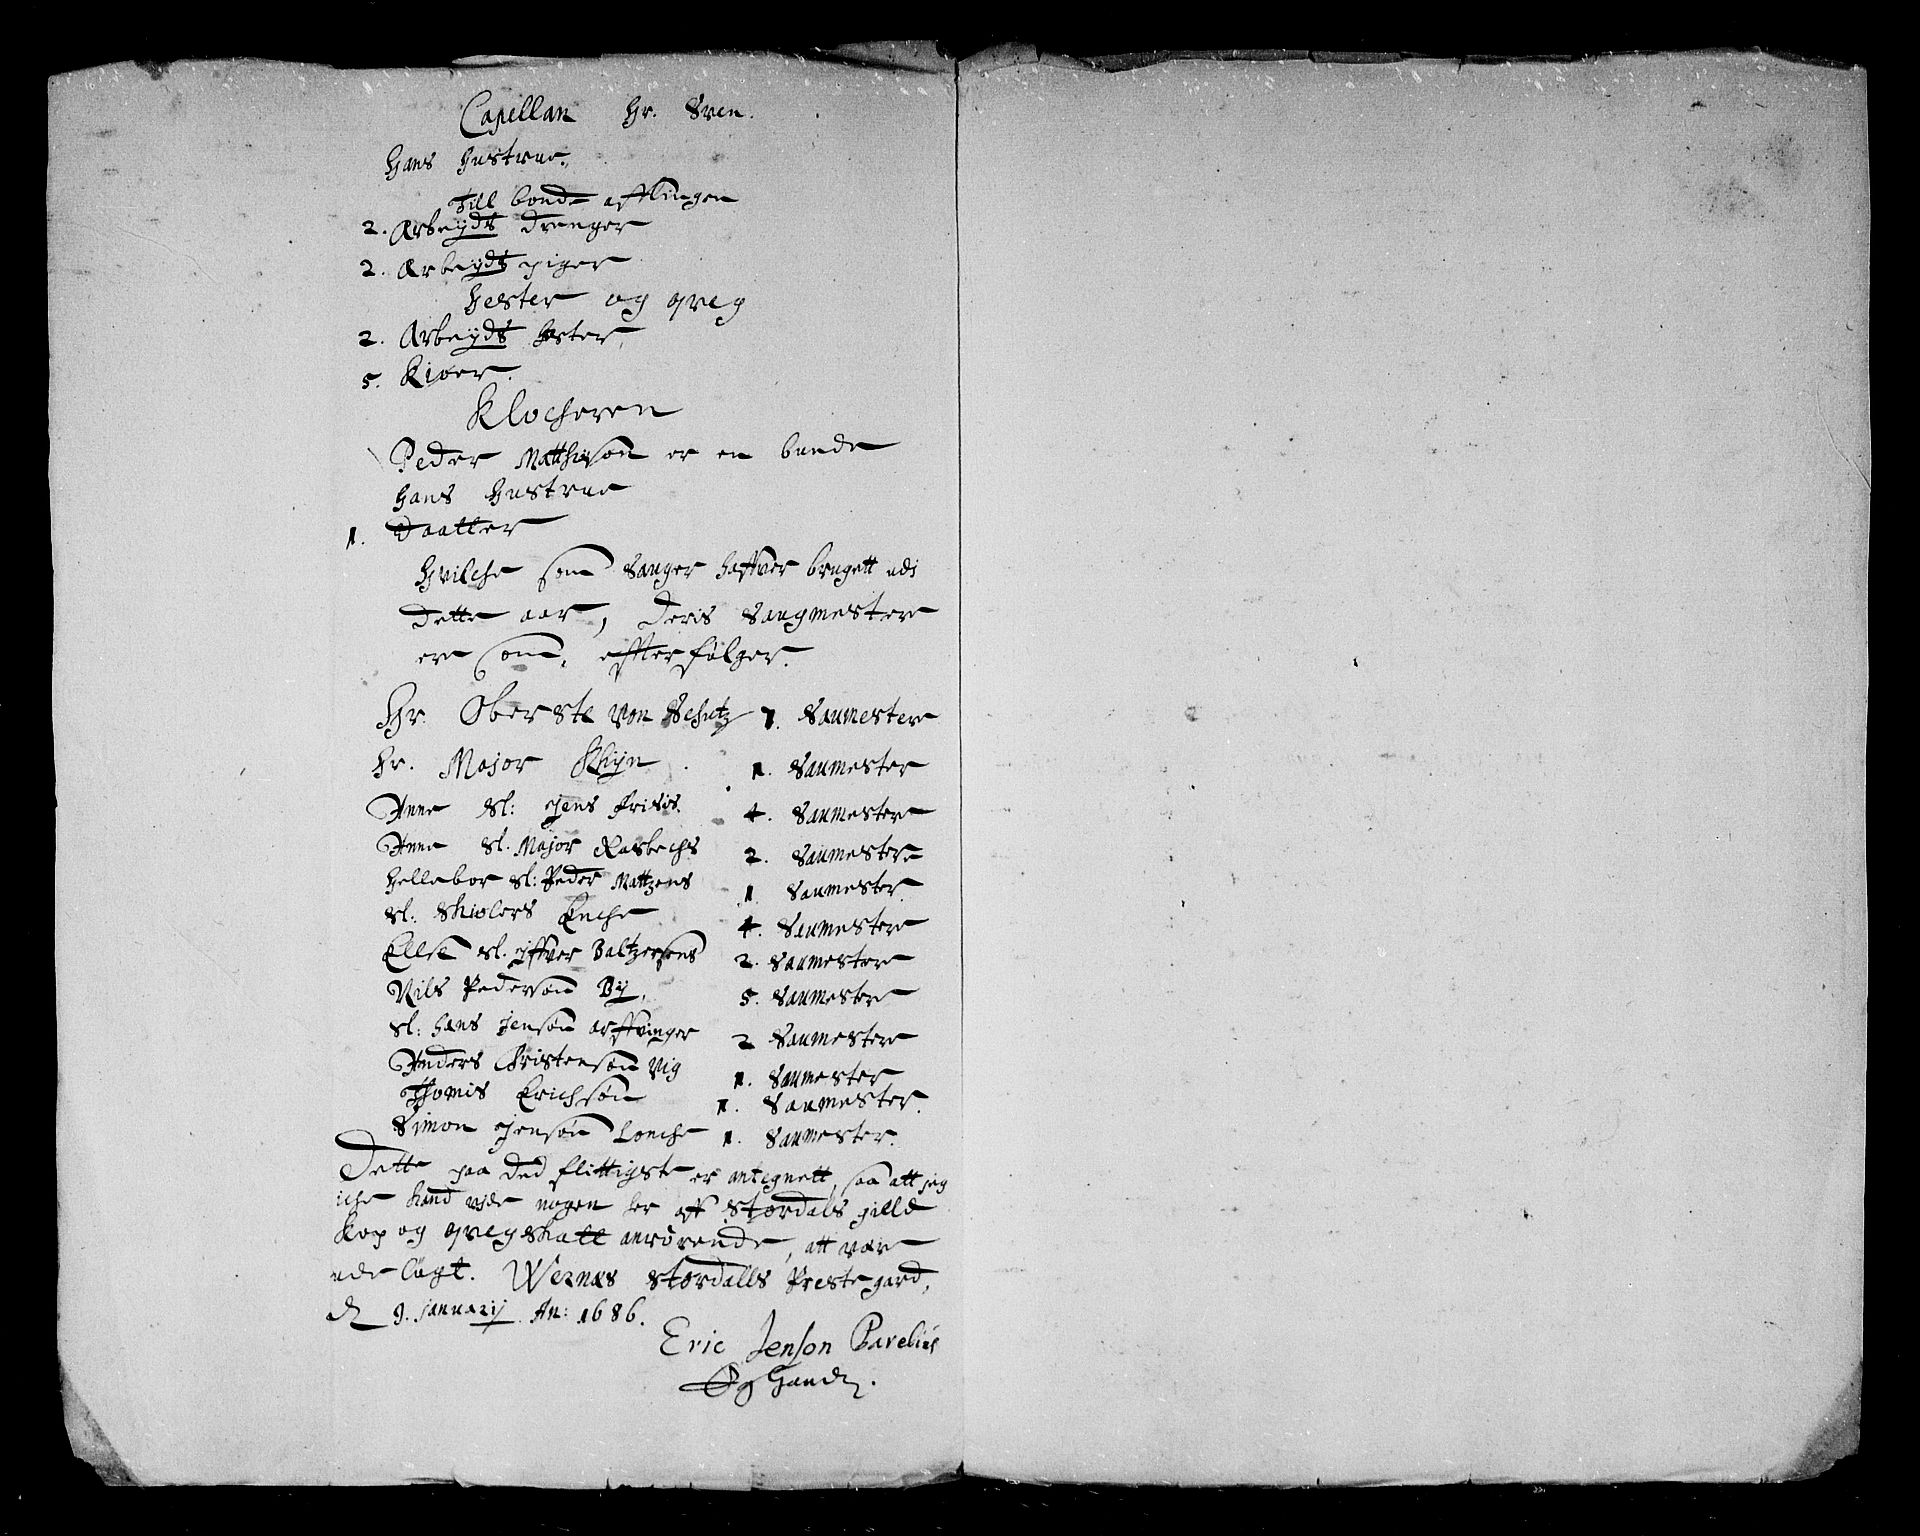 Capellan Hr. Sven.
Hans Hustrue.
Till bonde afflingen
2. Arbeyds drenger
2. Arbeyds piger
Hester og qveg
2. Arbeyds Hester.
5. Kiøer.
Klocheren
Peder Matthison er en bunde
Hans Hustrue
1. Daatter
Hvilche som Sauger haffver brugett udi
dette aar, deris Saugmestere
ere som, effterfølger.
Hr. Oberste von Schutz 7. Saumestere
Hr. Major Khyn 1. Saumester
Anne Sl: Jens Frisis. 4. Saumestere
Anne Sl. Major Rosbechs 2. Saumestere
Hellebor Sl: Peder Mattzens 1. Saumester.
Sl. Skiølers Enche 4. Saumestere
Ellse Sl. Iffver Baltzersens 2. Saumestere
Nils Pedersøn By. 5. Saumestere
Sl: Hans Jensøn arffvinger 2 Saumestere
Anders Christensøn Vig 1. Saumester
Thomis Erichsøn 1. Saumester.
Simon Jensøn Lonche 1. Saumester.
Dette paa ded flittigste er antegnett, saa att jeg
iche kand vide nogen her aff Størdals gilld
Kop og qvegskatt anrørende, att være
ude lagt. Wernæs Størdalls Prestegard,
d 9. January An: 1686.
Eric Jenson Barelius
Eg Handt.